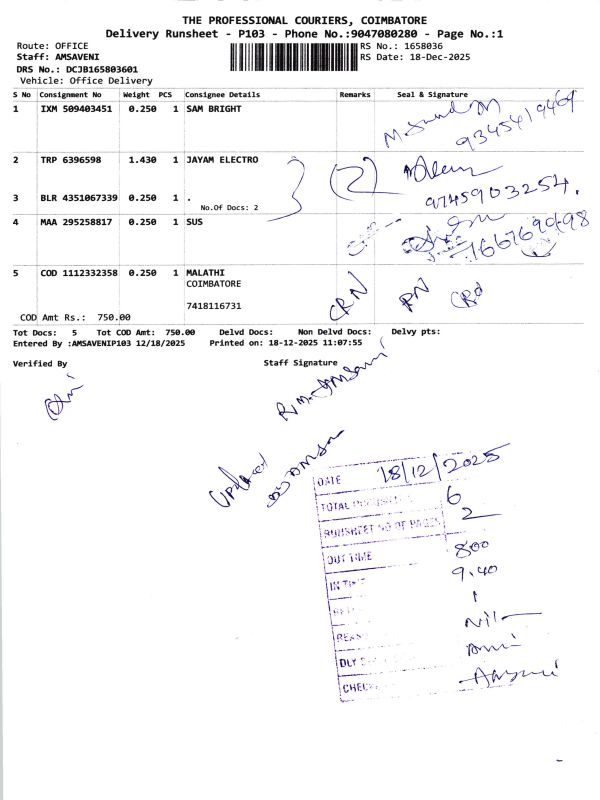 THE PROFESSIONAL COURIERS, COIMBATORE
Delivery Runsheet - P103 - Phone No.:9047080280 - Page No.:1
Route: OFFICE RS No.: 1658036
Staff: AMSAVENI RS Date: 18-Dec-2025
DRS No.: DCJB165803601
Vehicle: Office Delivery
S No Consignment No Weight PCS Consignee Details Remarks Seal & Signature
1 IXM 509403451 0.250 1 SAM BRIGHT
9345419469
2 TRP 6396598 1.430 1 JAYAM ELECTRO
(2)
3 BLR 4351067339 0.250 1 .
9745903254.
No.Of Docs: 2
4 MAA 295258817 0.250 1 SUS
5 COD 1112332358 0.250 1 MALATHI
COIMBATORE
7418116731
CRN PN CRd
COD Amt Rs.: 750.00
Tot Docs: 5 Tot COD Amt: 750.00 Delvd Docs: Non Delvd Docs: Delvy pts:
Entered By :AMSAVENIP103 12/18/2025 Printed on: 18-12-2025 11:07:55
Verified By Staff Signature
Updated
DATE 18/12/2025
TOTAL 6
RUNSHEET NO OF PAGES 2
OUT TIME 800
IN TIME 9.40
1
Nil
DLY